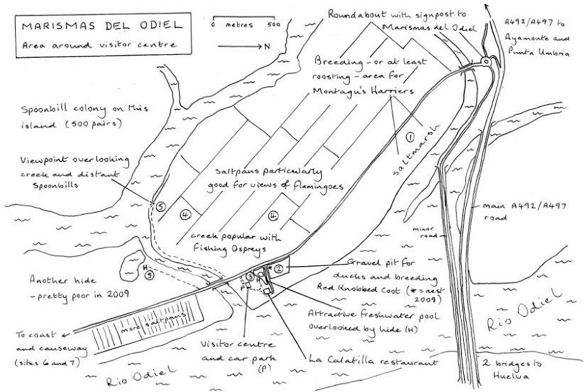 MARISMAS DEL ODIEL
Area around visitor centre
0 metres 500
N
Roundabout with signpost to
Marismas del Odiel
A492/A497 to
Ayamonte and
Punta Umbria
Breeding - or at least
roosting - area for
Montagu's Harriers
Spoonbill colony on this
island (500 pairs)
1
saltmarsh
Viewpoint overlooking
creek and distant
Spoonbills
saltpans particularly
good for views of flamingoes
5
4
4
main A492/A497
road
minor
road
creek popular with
Fishing Ospreys
Another hide
- pretty poor in 2009
H
5
3
H
2
P
Gravel pit for
ducks and breeding
Red Knobbed Coot (* = nest
2009)
Attractive freshwater pool
overlooked by hide (H)
more saltpans
To coast
and causeway
(sites 6 and 7)
Visitor centre
and car park
(P)
La Calatilla restaurant
Rio Odiel
Rio Odiel
2 bridges to
Huelva